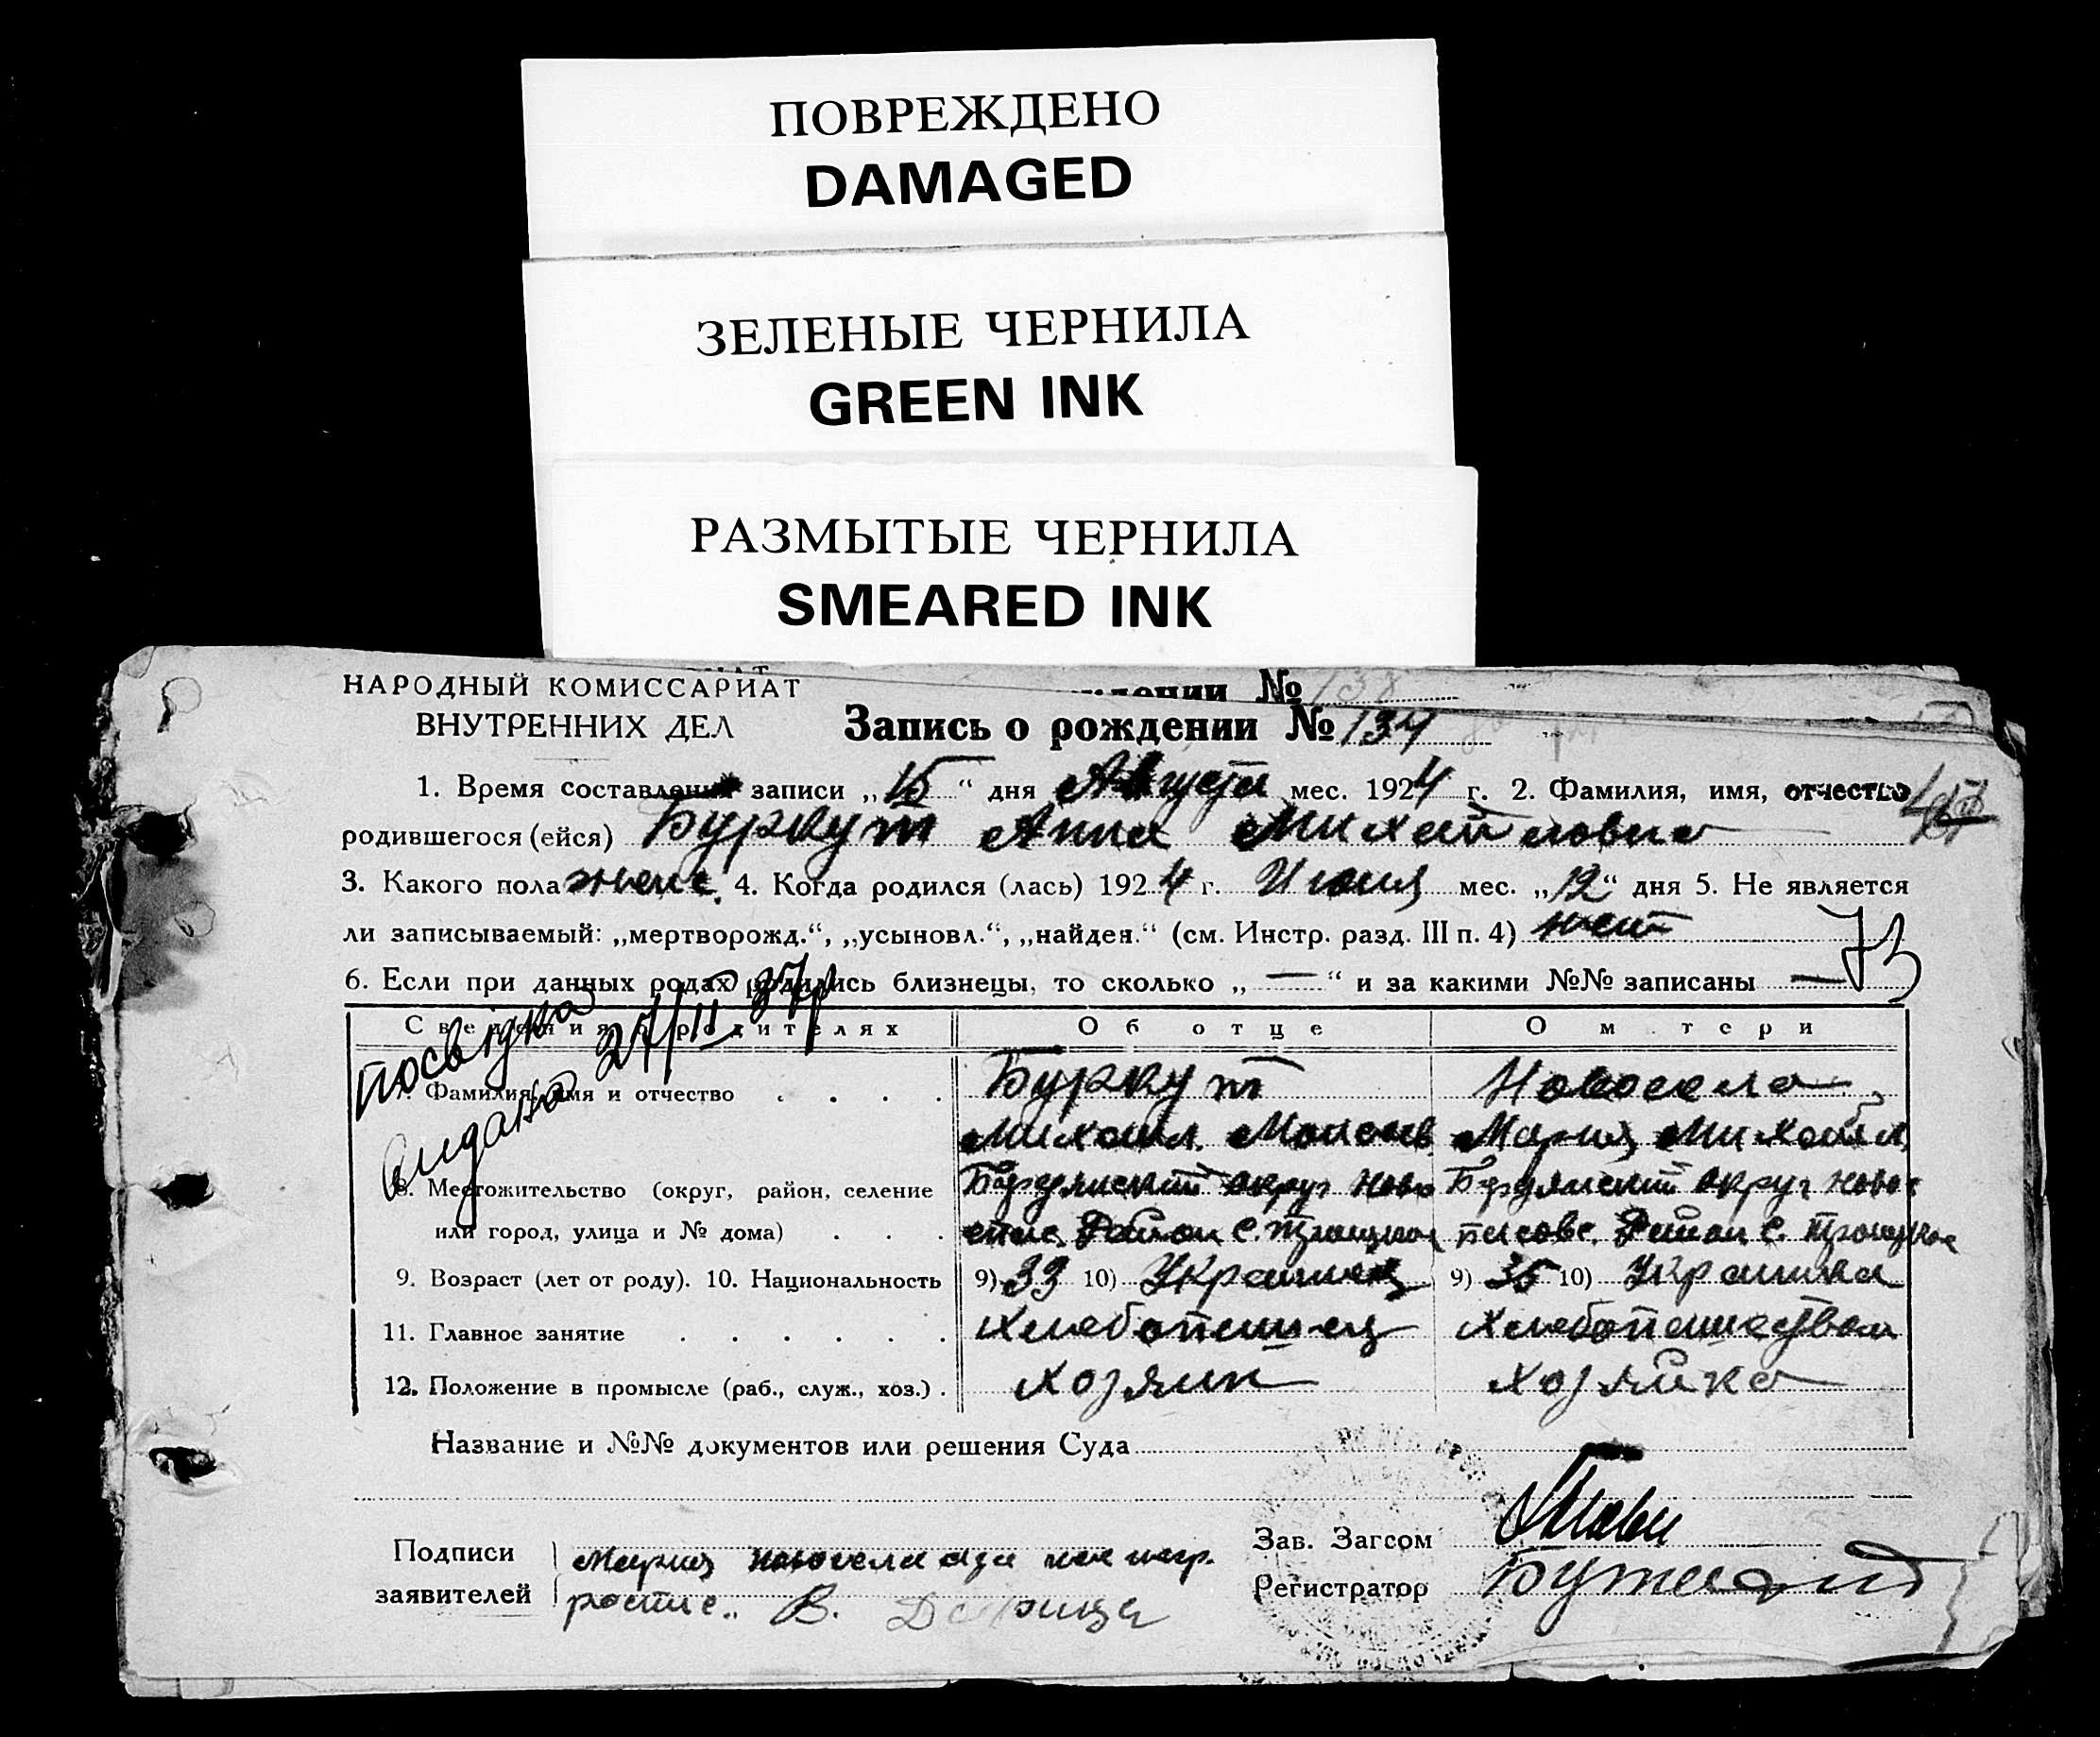 ПОВРЕЖДЕНО
DAMAGED
ЗЕЛЕНЫЕ ЧЕРНИЛА
GREEN INK
РАЗМЫТЫЕ ЧЕРНИЛА
SMEARED INK
№ 138
НАРОДНЫЙ КОМИССАРИАТ
ВНУТРЕННИХ ДЕЛ
Запись о рождении № 134
1. Время составления записи „15“ дня Августа мес. 1924 г. 2. Фамилия, имя, отчество
родившегося (ейся) Буркут Анна Михайловна
3. Какого пола женс. 4. Когда родился (лась) 1924 г. Июня мес. „12“ дня 5. Не является
ли записываемый: „мертворожд.“, „усыновл.“, „найден.“ (см. Инстр. разд. III п. 4) нет
73
6. Если при данных родах родились близнецы, то сколько „—“ и за какими №№ записаны —
посвідка
видана 27/II 37р
Сведения о родителях Об отце О матери
Фамилия, имя и отчество Буркут Новосела
Михаил Моисеев Мария Михайл
8. Местожительство (округ, район, селение Бердянский округ Ново Бердянский округ Ново
или город, улица и № дома) Район с. Троицкое Район с. Троицкое
9. Возраст (лет от роду). 10. Национальность 9) 33 10) Украинец 9) 35 10) Украинка
11. Главное занятие Хлебопашец Хлебопашеством
12. Положение в промысле (раб., служ., хоз.) хозяин хозяйка
Название и №№ документов или решения Суда
Подписи заявителей Мария Новосела за неграм.
В.
Зав. Загсом
Регистратор